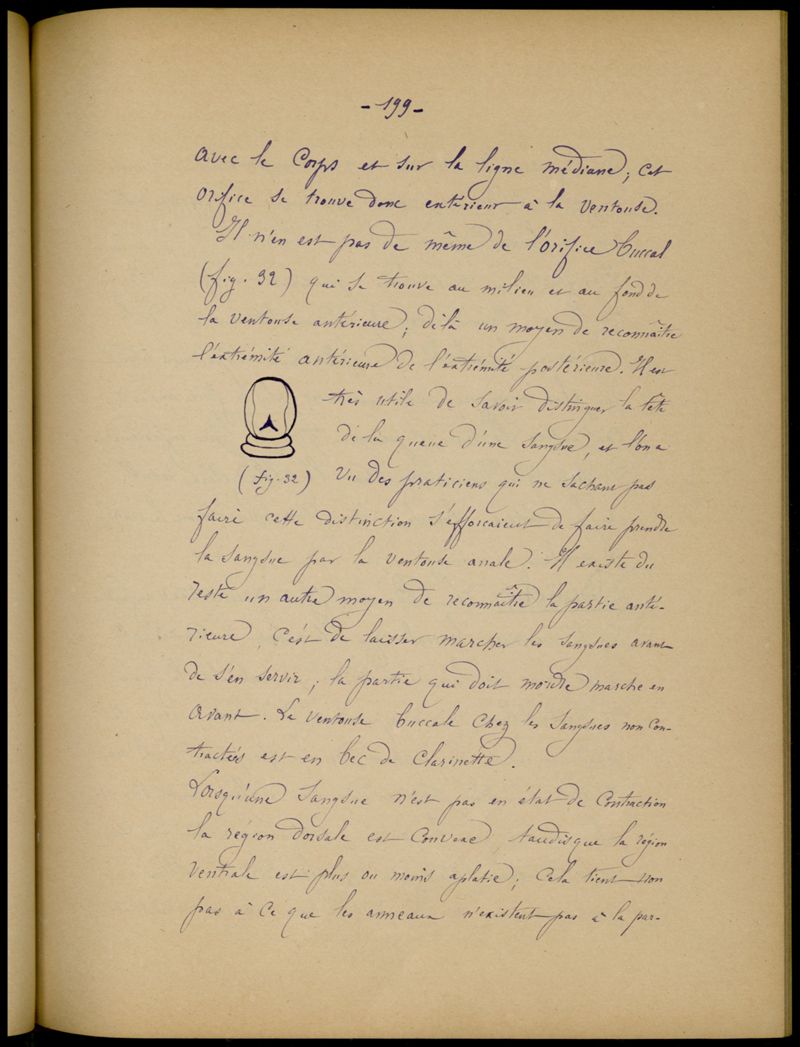 - 199 -
avec le corps et sur la ligne médiane ; cet
orifice se trouve donc extérieur à la ventouse.
Il n'en est pas de même de l'orifice buccal
(fig. 32) qui se trouve au milieu et au fond de
la ventouse antérieure ; de là un moyen de reconnaître
l'extrémité antérieure de l'extrémité postérieure. Il est
très utile de savoir distinguer la tête
de la queue d'une sangsue, et l'on a
(fig. 32) vu des praticiens qui ne sachant pas
faire cette distinction s'efforcaient de faire prendre
la sangsue par la ventouse anale. Il existe du
reste un autre moyen de reconnaître la partie anté-
rieure, c'est de laisser marcher les sangsues avant
de s'en servir ; la partie qui doit mordre marche en
avant. La ventouse buccale chez les sangsues non con-
tractées est en bec de clarinette.
Lorsqu'une sangsue n'est pas en état de contraction
la région dorsale est convexe, tandisque la région
ventrale est plus ou moins aplatie ; cela tient non
pas à ce que les anneaux n'existent pas à la par-